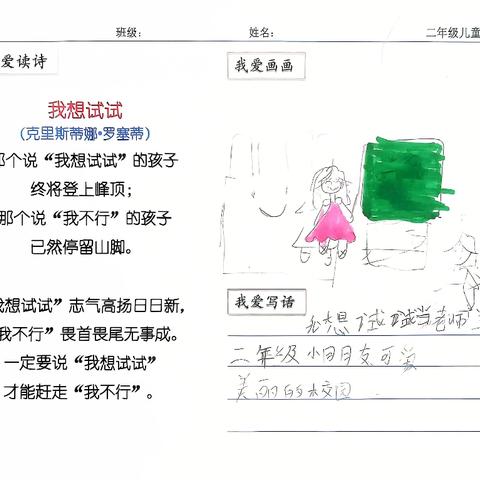 班级：
姓名：
二年级儿童
爱读诗
我想试试
（克里斯蒂娜•罗塞蒂）
那个说“我想试试”的孩子
终将登上峰顶；
那个说“我不行”的孩子
已然停留山脚。
我想试试”志气高扬日日新，
我不行”畏首畏尾无事成。
一定要说“我想试试”
才能赶走“我不行”。
我爱画画
我爱写语
我想试试当老师
二年级小朋友可爱
美丽的校园